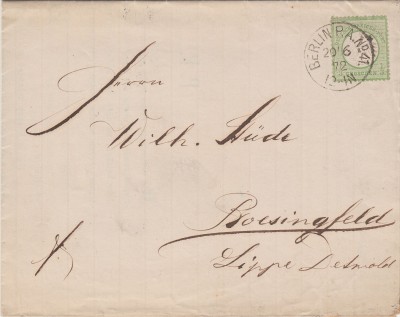 BERLIN P.A. No 41.
20 6
72
Herrn
Wilh. Hüde
Boesingfeld
Lippe Detmold